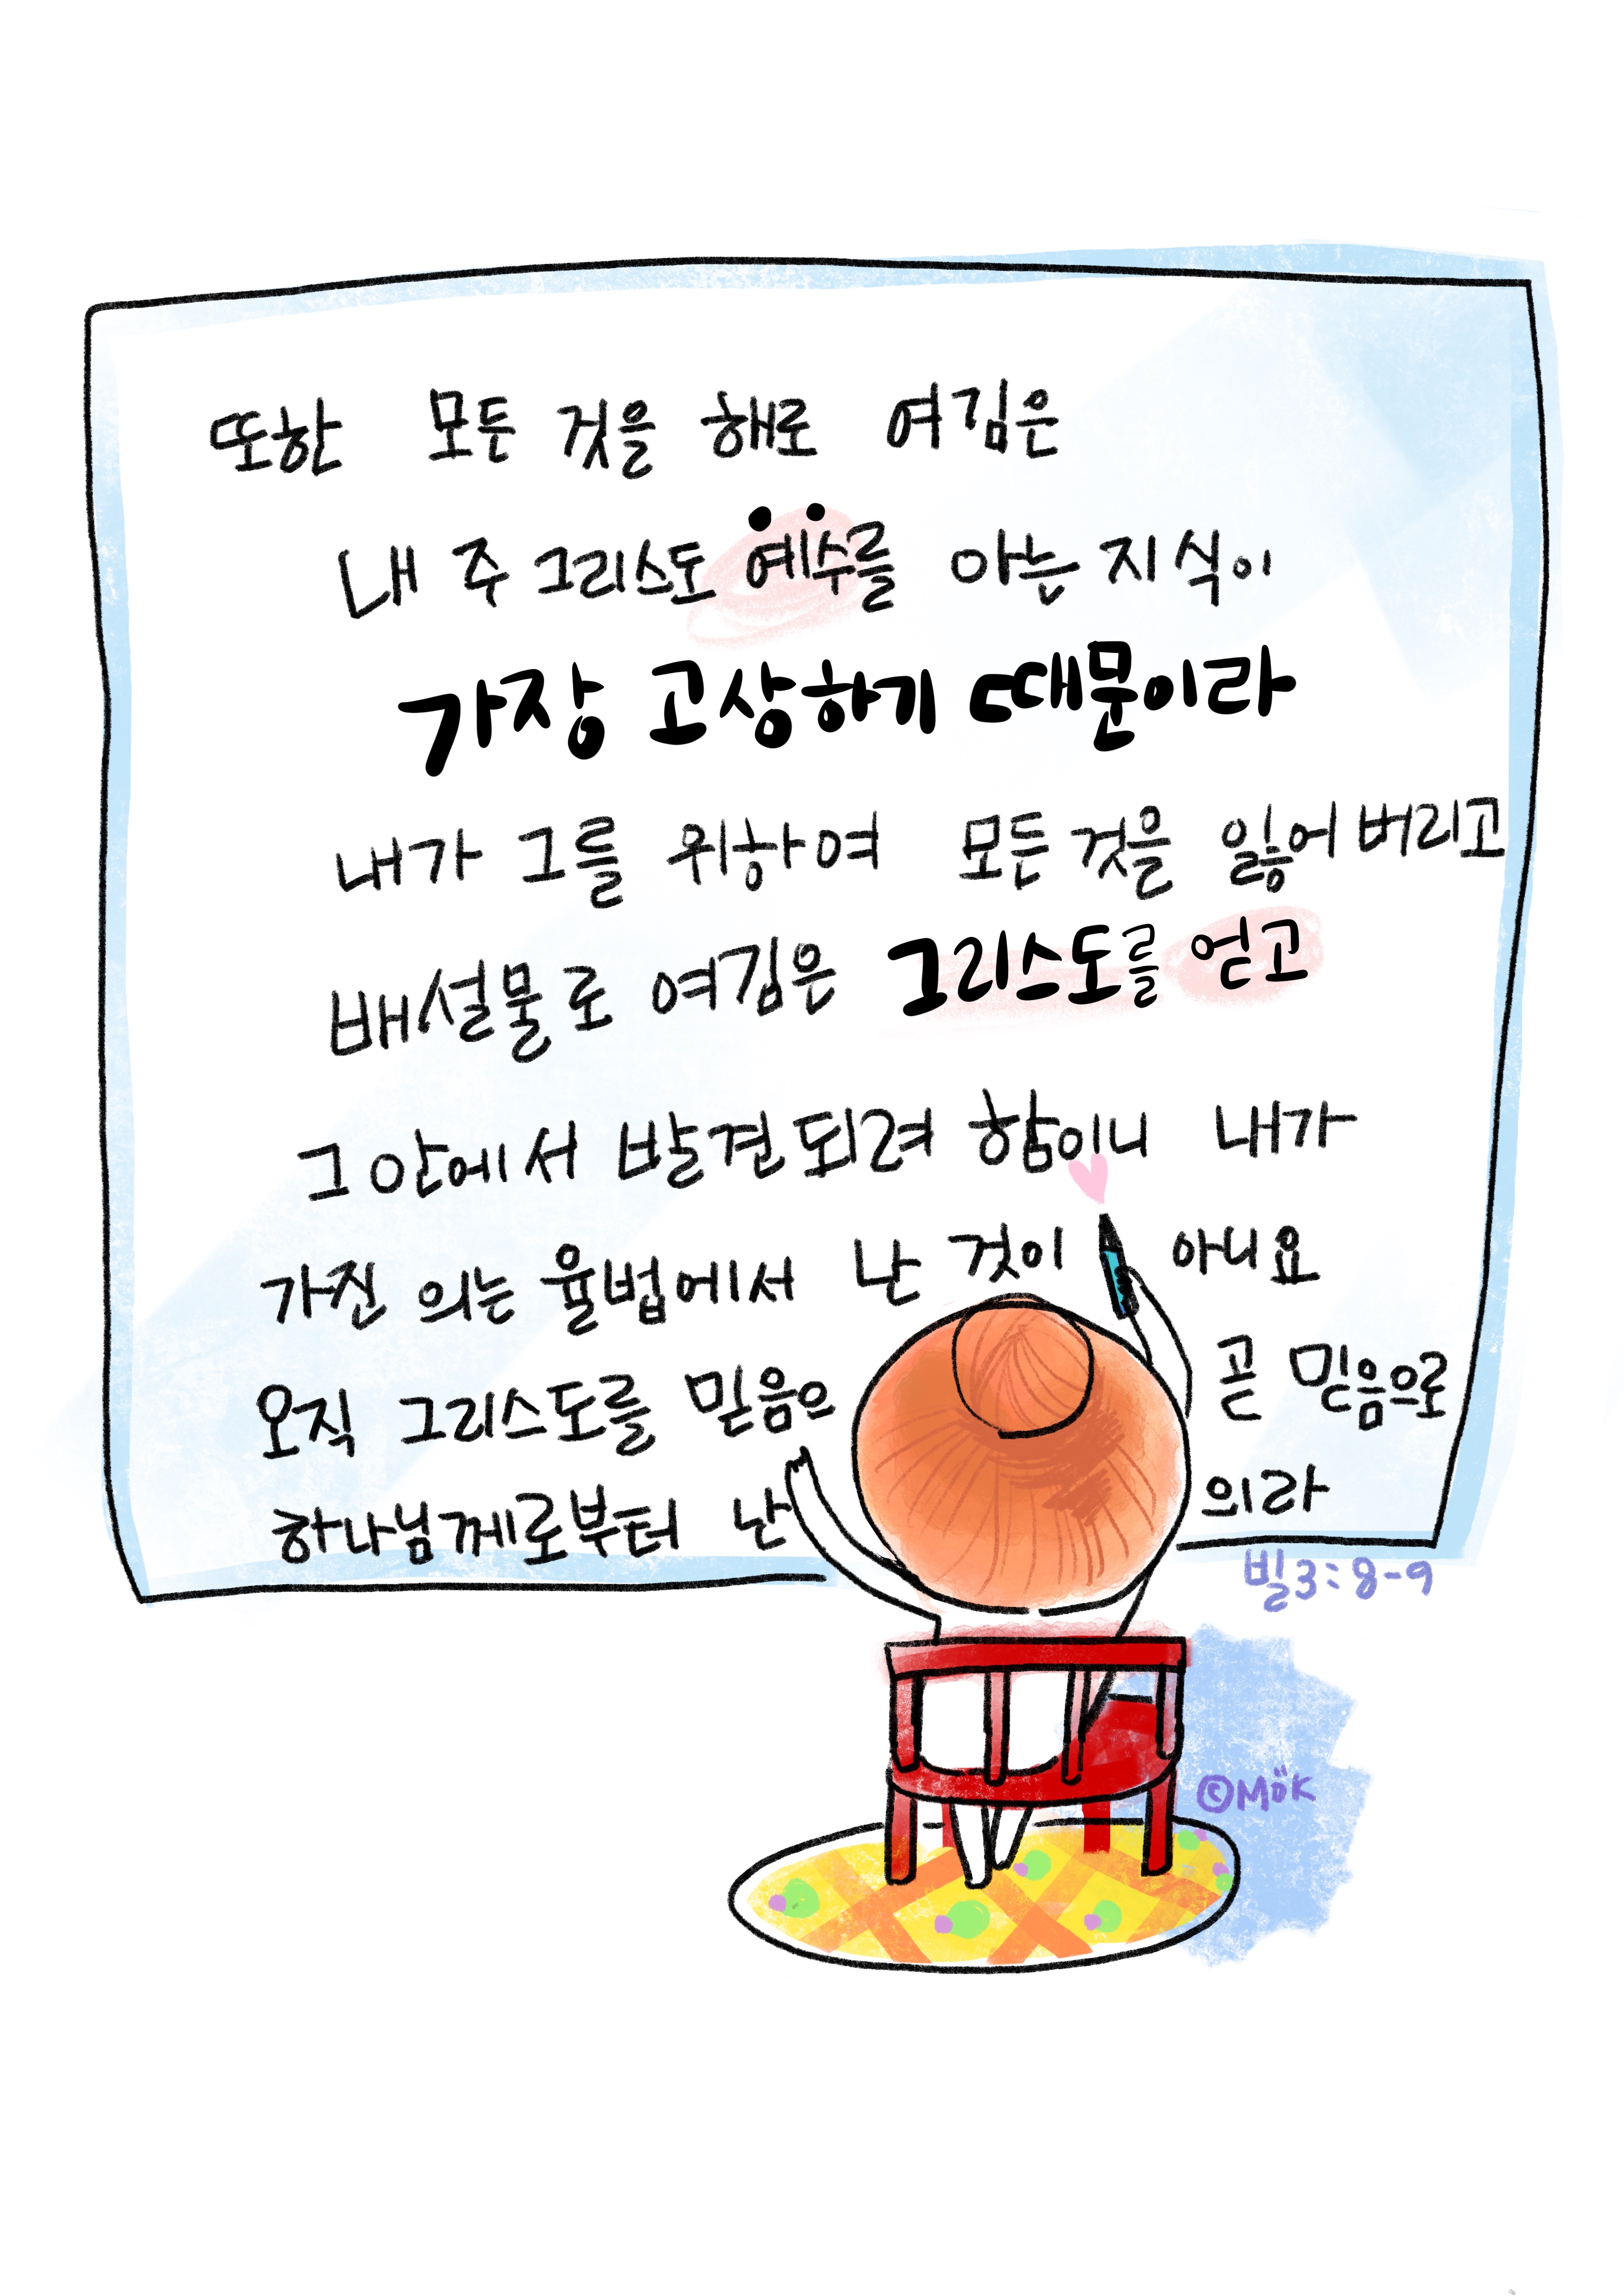 또한 모든 것을 해로 여김은
내 주 그리스도 예수를 아는 지식이
가장 고상하기 때문이라
내가 그를 위하여 모든 것을 잃어버리고
배설물로 여김은 그리스도를 얻고
그 안에서 발견되려 함이니 내가
가진 의는 율법에서 난 것이 아니요
오직 그리스도를 믿음으 곧 믿음으로
하나님께로부터 난 의라
빌3:8-9
©MÖK